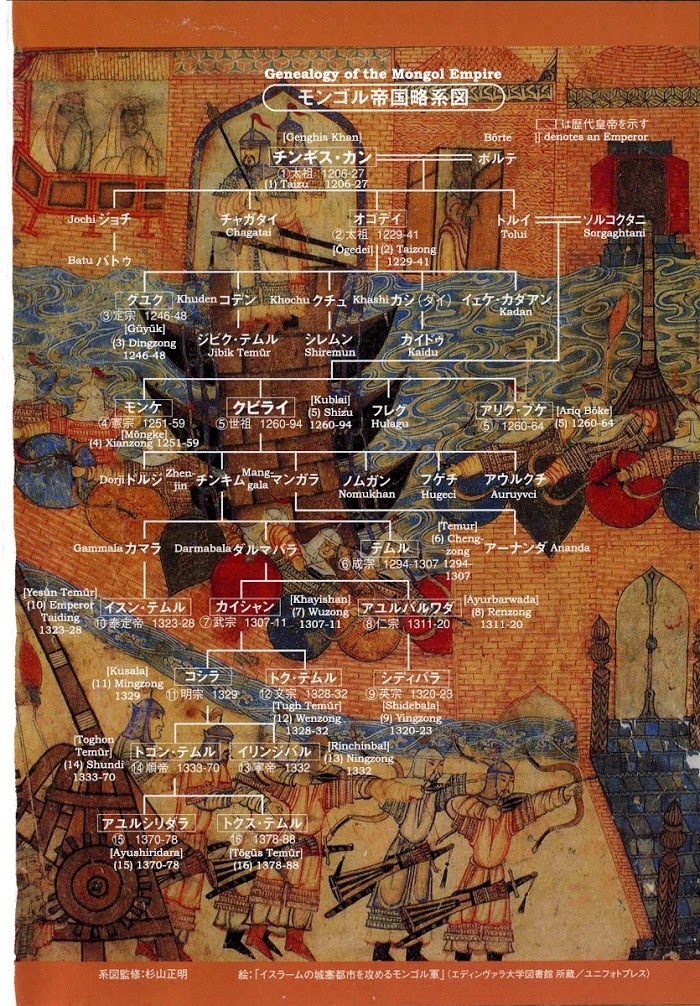 Genealogy of the Mongol Empire
モンゴル帝国略系図
□は歴代皇帝を示す
[] denotes an Emperor
[Genghis Khan]
チンギス・カン
①太祖 1206-27
(1) Taizu 1206-27
Börte
ボルテ
Jochi ジョチ
チャガタイ
Chagatai
オゴデイ
②太祖 1229-41
[Ögedei] (2) Taizong
1229-41
トルイ
Tolui
ソルコクタニ
Sorgaghtani
Batu バトゥ
グユク
③定宗 1246-48
[Güyük]
(3) Dingzong
1246-48
Khuden コデン
Khochu クチュ
Khashi カシ(タイ)
イェケ・カダアン
Kadan
ジビク・テムル
Jibik Temür
シレムン
Shiremun
カイドゥ
Kaidu
モンケ
④憲宗 1251-59
[Möngke]
(4) Xianzong 1251-59
クビライ
⑤世祖 1260-94
[Kublai]
(5) Shizu
1260-94
フレグ
Hulagu
アリク・ブケ
⑤ 1260-64
[Ariq Böke]
(5) 1260-64
Dorji ドルジ
Zhen-
jin チンキム
Mang-
gala マンガラ
ノムガン
Nomukhan
フゲチ
Hugeci
アウルクチ
Auruyvci
Gammala カマラ
Darmabala ダルマバラ
テムル
⑥成宗 1294-1307
[Temur]
(6) Cheng-
zong
1294-
1307
アーナンダ Ananda
[Yesün Temür]
(10) Emperor
Taiding
1323-28
イスン・テムル
⑩泰定帝 1323-28
カイシャン
⑦武宗 1307-11
[Khayishan]
(7) Wuzong
1307-11
アユルバルワダ
⑧仁宗 1311-20
[Ayurbarwada]
(8) Renzong
1311-20
[Kusala]
(11) Mingzong
1329
コシラ
⑪明宗 1329
トク・テムル
⑫文宗 1328-32
[Tugh Temür]
(12) Wenzong
1328-32
シディバラ
⑨英宗 1320-23
[Shidebala]
(9) Yingzong
1320-23
[Toghon
Temür]
(14) Shundi
1333-70
トゴン・テムル
⑭順帝 1333-70
イリンジバル
⑬寧宗 1332
[Rinchinbal]
(13) Ningzong
1332
アユルシリダラ
⑮ 1370-78
[Ayushiridara]
(15) 1370-78
トクス・テムル
⑯ 1378-88
[Tögüs Temür]
(16) 1378-88
系図監修:杉山正明
絵:「イスラームの城塞都市を攻めるモンゴル軍」(エディンヴァラ大学図書館 所蔵/ユニフォトプレス)